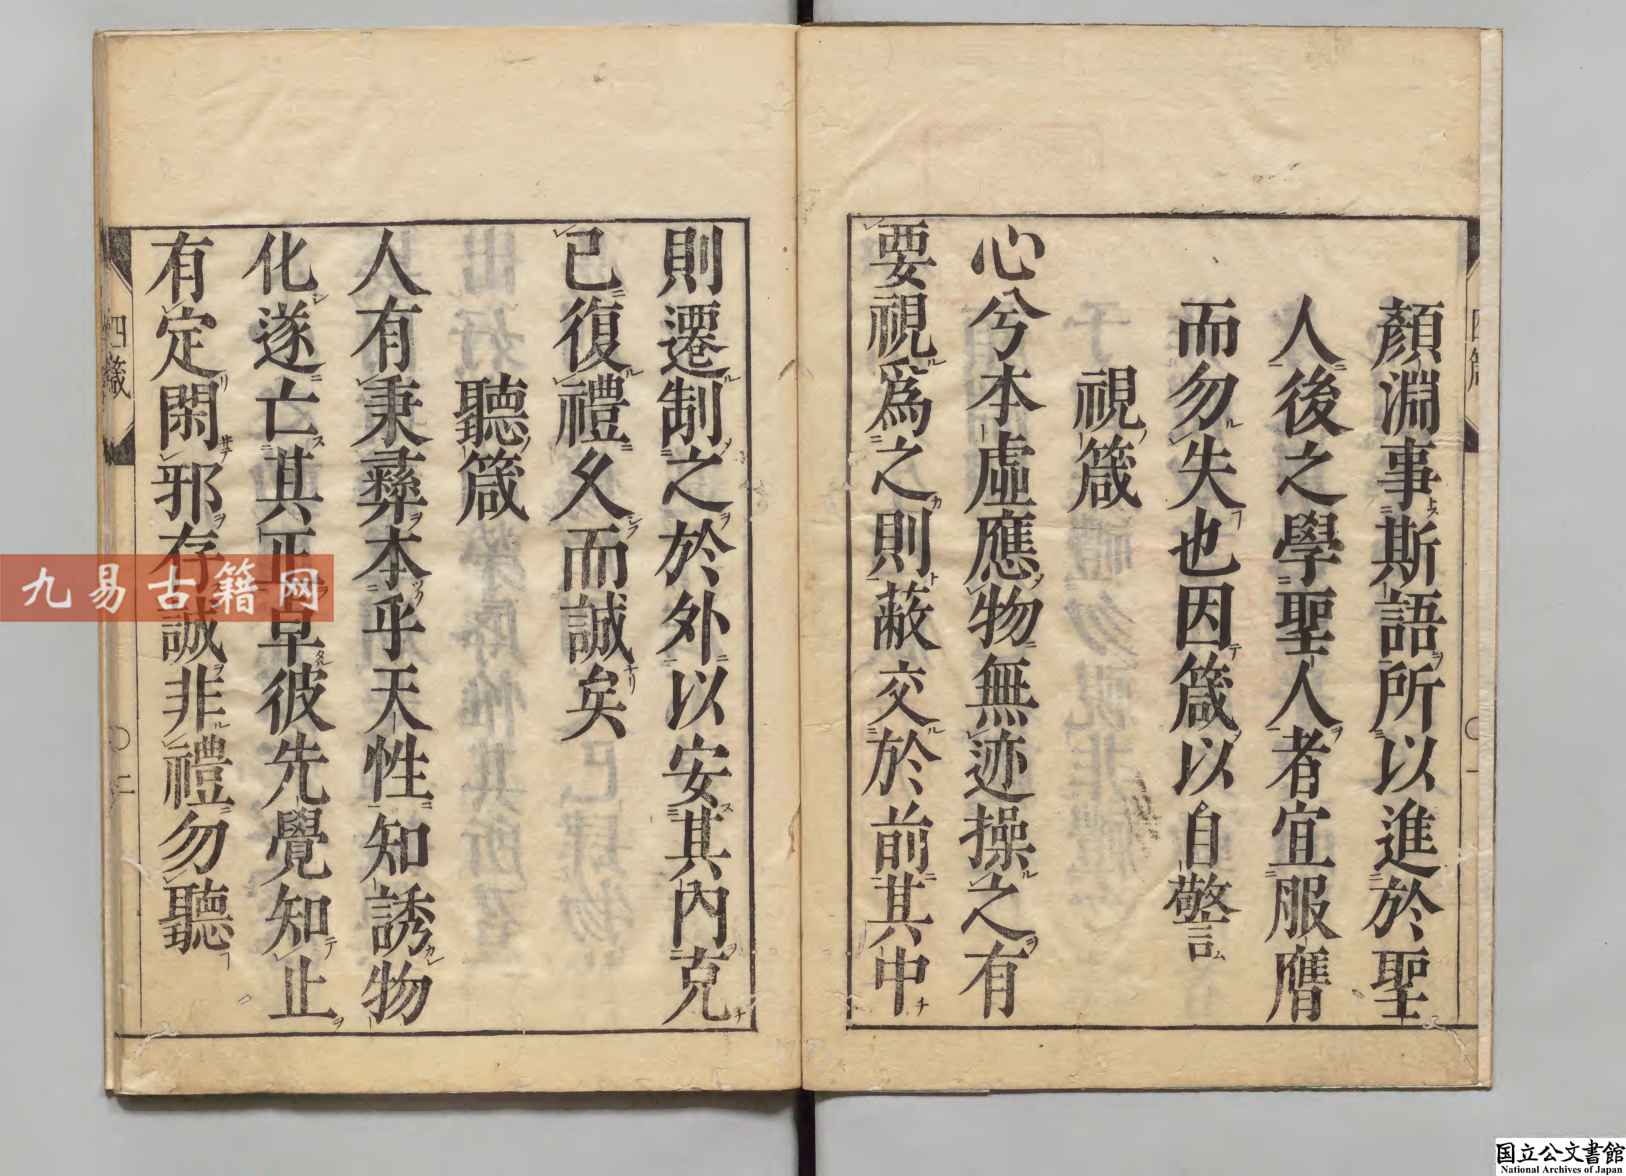 顏淵事斯語所以進於聖
人後之學聖人者宜服膺
而勿失也因箴以自警
視箴
心兮本虛應物無迹操之有
要視爲之則蔽交於前其中
則遷制之於外以安其內克
己復禮久而誠矣
聽箴
人有秉彝本乎天性知誘物
化遂亡其正卓彼先覺知止
有定閑邪存誠非禮勿聽
四箴
一
四箴
二
九易古籍网
国立公文書館
National Archives of Japan